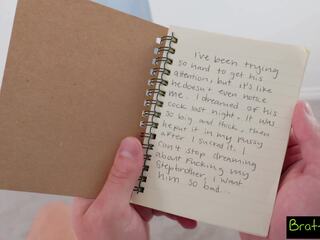 I've been trying
so hard to get his
attention, but it's like
he doesnt even notice
me. I dreamed of his
cock last night. It was
so big and thick, then
he put it in my pussy
after I sucked it. I
can't stop dreaming
about fucking my
Stepbrother, I want
him so bad...
Brat